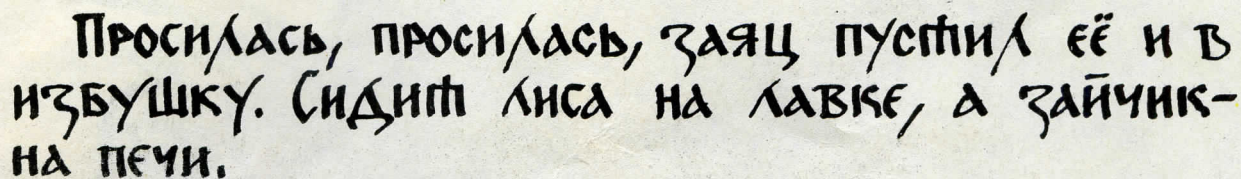 Просилась, просилась, заяц пустил её и в
избушку. Сидит лиса на лавке, а зайчик-
на печи.